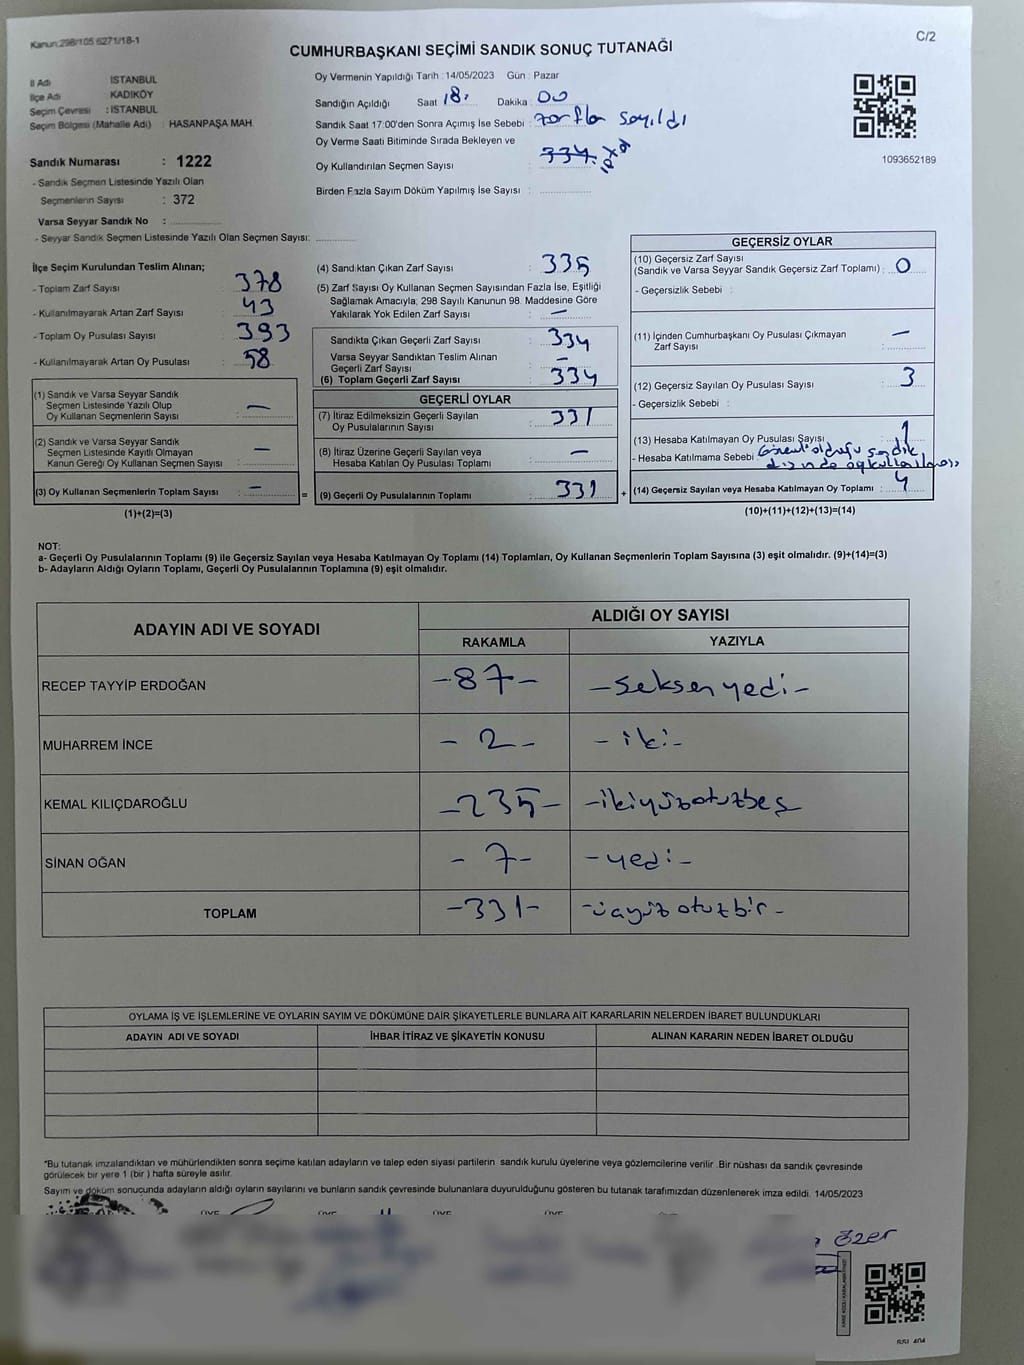 Kanun:298/105 6271/18-1
C/2
CUMHURBAŞKANI SEÇİMİ SANDIK SONUÇ TUTANAĞI
İl Adı İSTANBUL
İlçe Adı KADIKÖY
Seçim Çevresi : İSTANBUL
Seçim Bölgesi (Mahalle Adı) : HASANPAŞA MAH
Sandık Numarası : 1222
- Sandık Seçmen Listesinde Yazılı Olan
Seçmenlerin Sayısı : 372
Varsa Seyyar Sandık No :
- Seyyar Sandık Seçmen Listesinde Yazılı Olan Seçmen Sayısı:
Oy Vermenin Yapıldığı Tarih : 14/05/2023 Gün : Pazar
Sandığın Açıldığı Saat 18. Dakika 00
Sandık Saat 17:00'den Sonra Açımış İse Sebebi : zarflar sayıldı
Oy Verme Saati Bitiminde Sırada Bekleyen ve
Oy Kullandırılan Seçmen Sayısı : 334
Birden Fazla Sayım Döküm Yapılmış İse Sayısı :
1093652189
İlçe Seçim Kurulundan Teslim Alınan;
- Toplam Zarf Sayısı : 378
- Kullanılmayarak Artan Zarf Sayısı : 43
- Toplam Oy Pusulası Sayısı : 393
- Kullanılmayarak Artan Oy Pusulası : 58
(1) Sandık ve Varsa Seyyar Sandık
Seçmen Listesinde Yazılı Olup
Oy Kullanan Seçmenlerin Sayısı : —
(2) Sandık ve Varsa Seyyar Sandık
Seçmen Listesinde Kayıtlı Olmayan
Kanun Gereği Oy Kullanan Seçmen Sayısı : —
(3) Oy Kullanan Seçmenlerin Toplam Sayısı : —
(1)+(2)=(3)
(4) Sandıktan Çıkan Zarf Sayısı : 335
(5) Zarf Sayısı Oy Kullanan Seçmen Sayısından Fazla İse, Eşitliği
Sağlamak Amacıyla; 298 Sayılı Kanunun 98. Maddesine Göre
Yakılarak Yok Edilen Zarf Sayısı : —
Sandıkta Çıkan Geçerli Zarf Sayısı : 334
Varsa Seyyar Sandıktan Teslim Alınan
Geçerli Zarf Sayısı : —
(6) Toplam Geçerli Zarf Sayısı : 334
GEÇERLİ OYLAR
(7) İtiraz Edilmeksizin Geçerli Sayılan
Oy Pusulalarının Sayısı : 331
(8) İtiraz Üzerine Geçerli Sayılan veya
Hesaba Katılan Oy Pusulası Toplamı : —
= (9) Geçerli Oy Pusulalarının Toplamı : 331 +
GEÇERSİZ OYLAR
(10) Geçersiz Zarf Sayısı
(Sandık ve Varsa Seyyar Sandık Geçersiz Zarf Toplamı) : 0
- Geçersizlik Sebebi :
(11) İçinden Cumhurbaşkanı Oy Pusulası Çıkmayan
Zarf Sayısı : —
(12) Geçersiz Sayılan Oy Pusulası Sayısı : 3
- Geçersizlik Sebebi :
(13) Hesaba Katılmayan Oy Pusulası Sayısı 1
- Hesaba Katılmama Sebebi : Görevli olduğu sandık
dışında oy kullanılması
(14) Geçersiz Sayılan veya Hesaba Katılmayan Oy Toplamı : 4
(10)+(11)+(12)+(13)=(14)
NOT:
a- Geçerli Oy Pusulalarının Toplamı (9) ile Geçersiz Sayılan veya Hesaba Katılmayan Oy Toplamı (14) Toplamları, Oy Kullanan Seçmenlerin Toplam Sayısına (3) eşit olmalıdır. (9)+(14)=(3)
b- Adayların Aldığı Oyların Toplamı, Geçerli Oy Pusulalarının Toplamına (9) eşit olmalıdır.
ADAYIN ADI VE SOYADI
ALDIĞI OY SAYISI
RAKAMLA YAZIYLA
RECEP TAYYİP ERDOĞAN -87- -seksenyedi-
MUHARREM İNCE -2- -iki-
KEMAL KILIÇDAROĞLU -235- -ikiyüzotuzbeş
SİNAN OĞAN -7- -yedi-
TOPLAM -331- -üçyüzotuzbir-
OYLAMA İŞ VE İŞLEMLERİNE VE OYLARIN SAYIM VE DÖKÜMÜNE DAİR ŞİKAYETLERLE BUNLARA AİT KARARLARIN NELERDEN İBARET BULUNDUKLARI
ADAYIN ADI VE SOYADI İHBAR İTİRAZ VE ŞİKAYETİN KONUSU ALINAN KARARIN NEDEN İBARET OLDUĞU
*Bu tutanak imzalandıktan ve mühürlendikten sonra seçime katılan adayların ve talep eden siyasi partilerin sandık kurulu üyelerine veya gözlemcilerine verilir .Bir nüshası da sandık çevresinde
görülecek bir yere 1 (bir ) hafta süreyle asılır.
Sayım ve döküm sonucunda adayların aldığı oyların sayılarını ve bunların sandık çevresinde bulunanlara duyurulduğunu gösteren bu tutanak tarafımızdan düzenlenerek imza edildi. 14/05/2023
ÜYE ÜYE ÜYE ÜYE
Özer